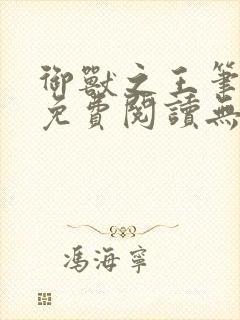 御獸之王筆
免費閱讀無
馮海寧